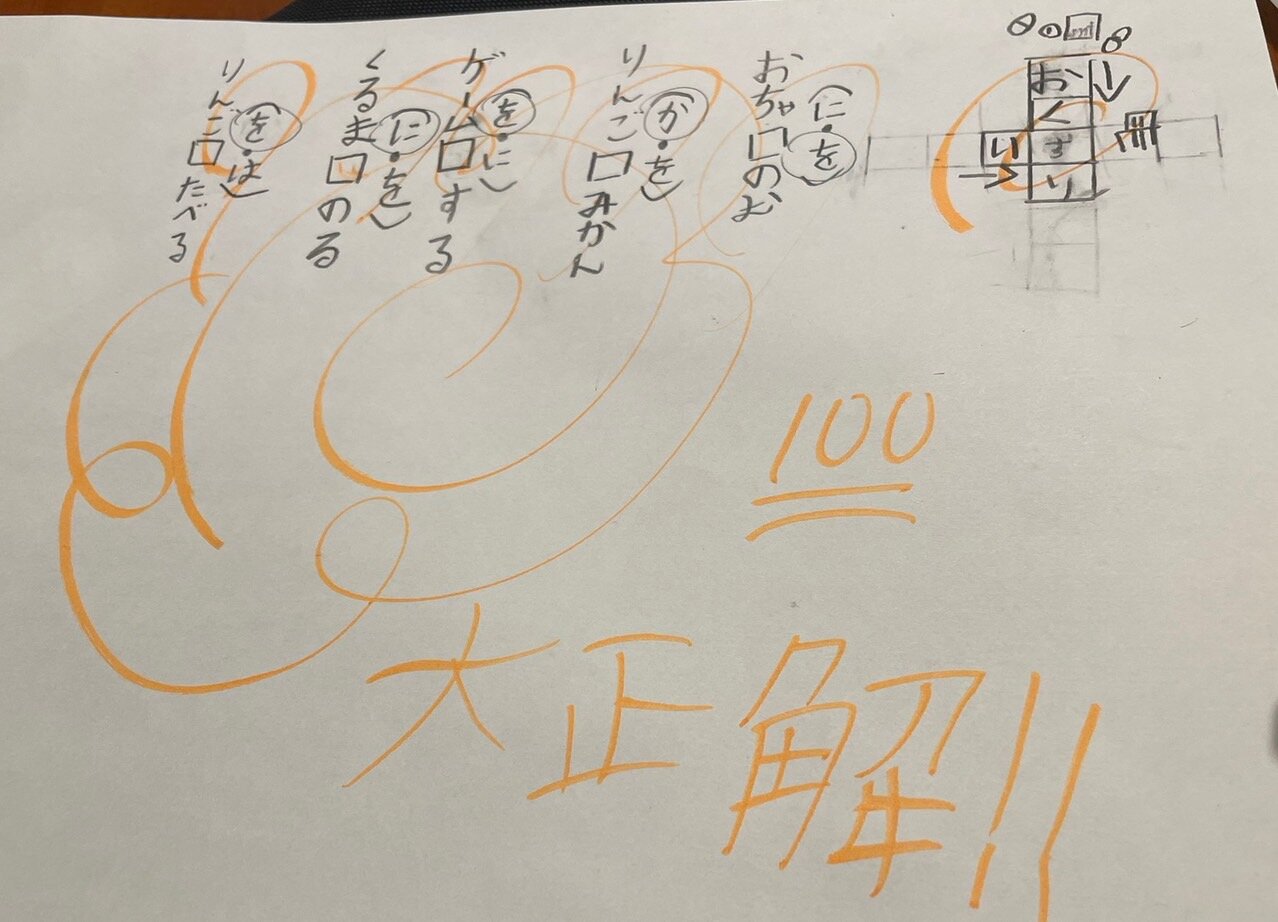 お
く
い
す
り
おちゃ□のむ
(に・を)
りんご□みかん
(か・を)
ゲーム□する
(を・に)
くるま□のる
(に・を)
りんご□たべる
(を・は)
100
大正解!!